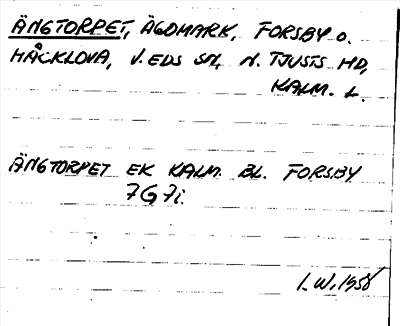 ÄNGTORPET, ÄGOMARK, FORSBY O.
HÅCKLOVA, V. EDS SN, N. TJUSTS HD,
KALM. L.
ÄNGTORPET EK KALM. BL. FORSBY
7G 7i.
I. W. 1958